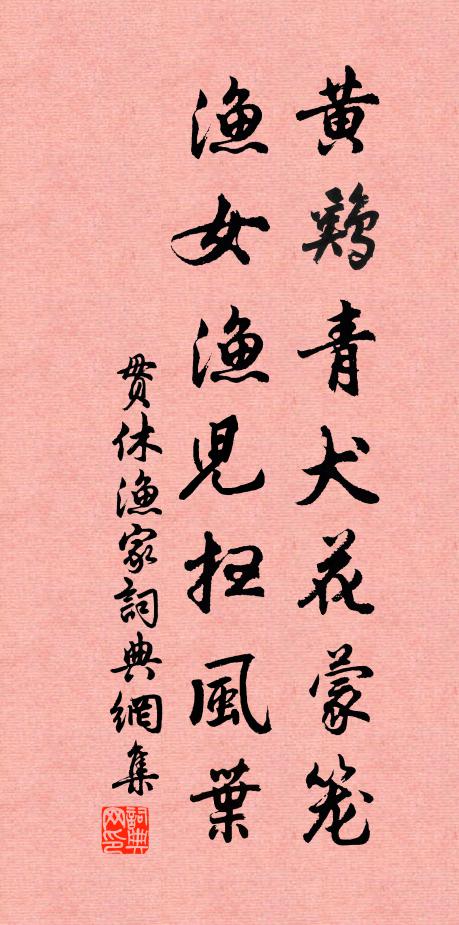 黄鷄青犬花蒙笼
渔女渔児扫風葉
贯休渔家詞典網集
詞典网印